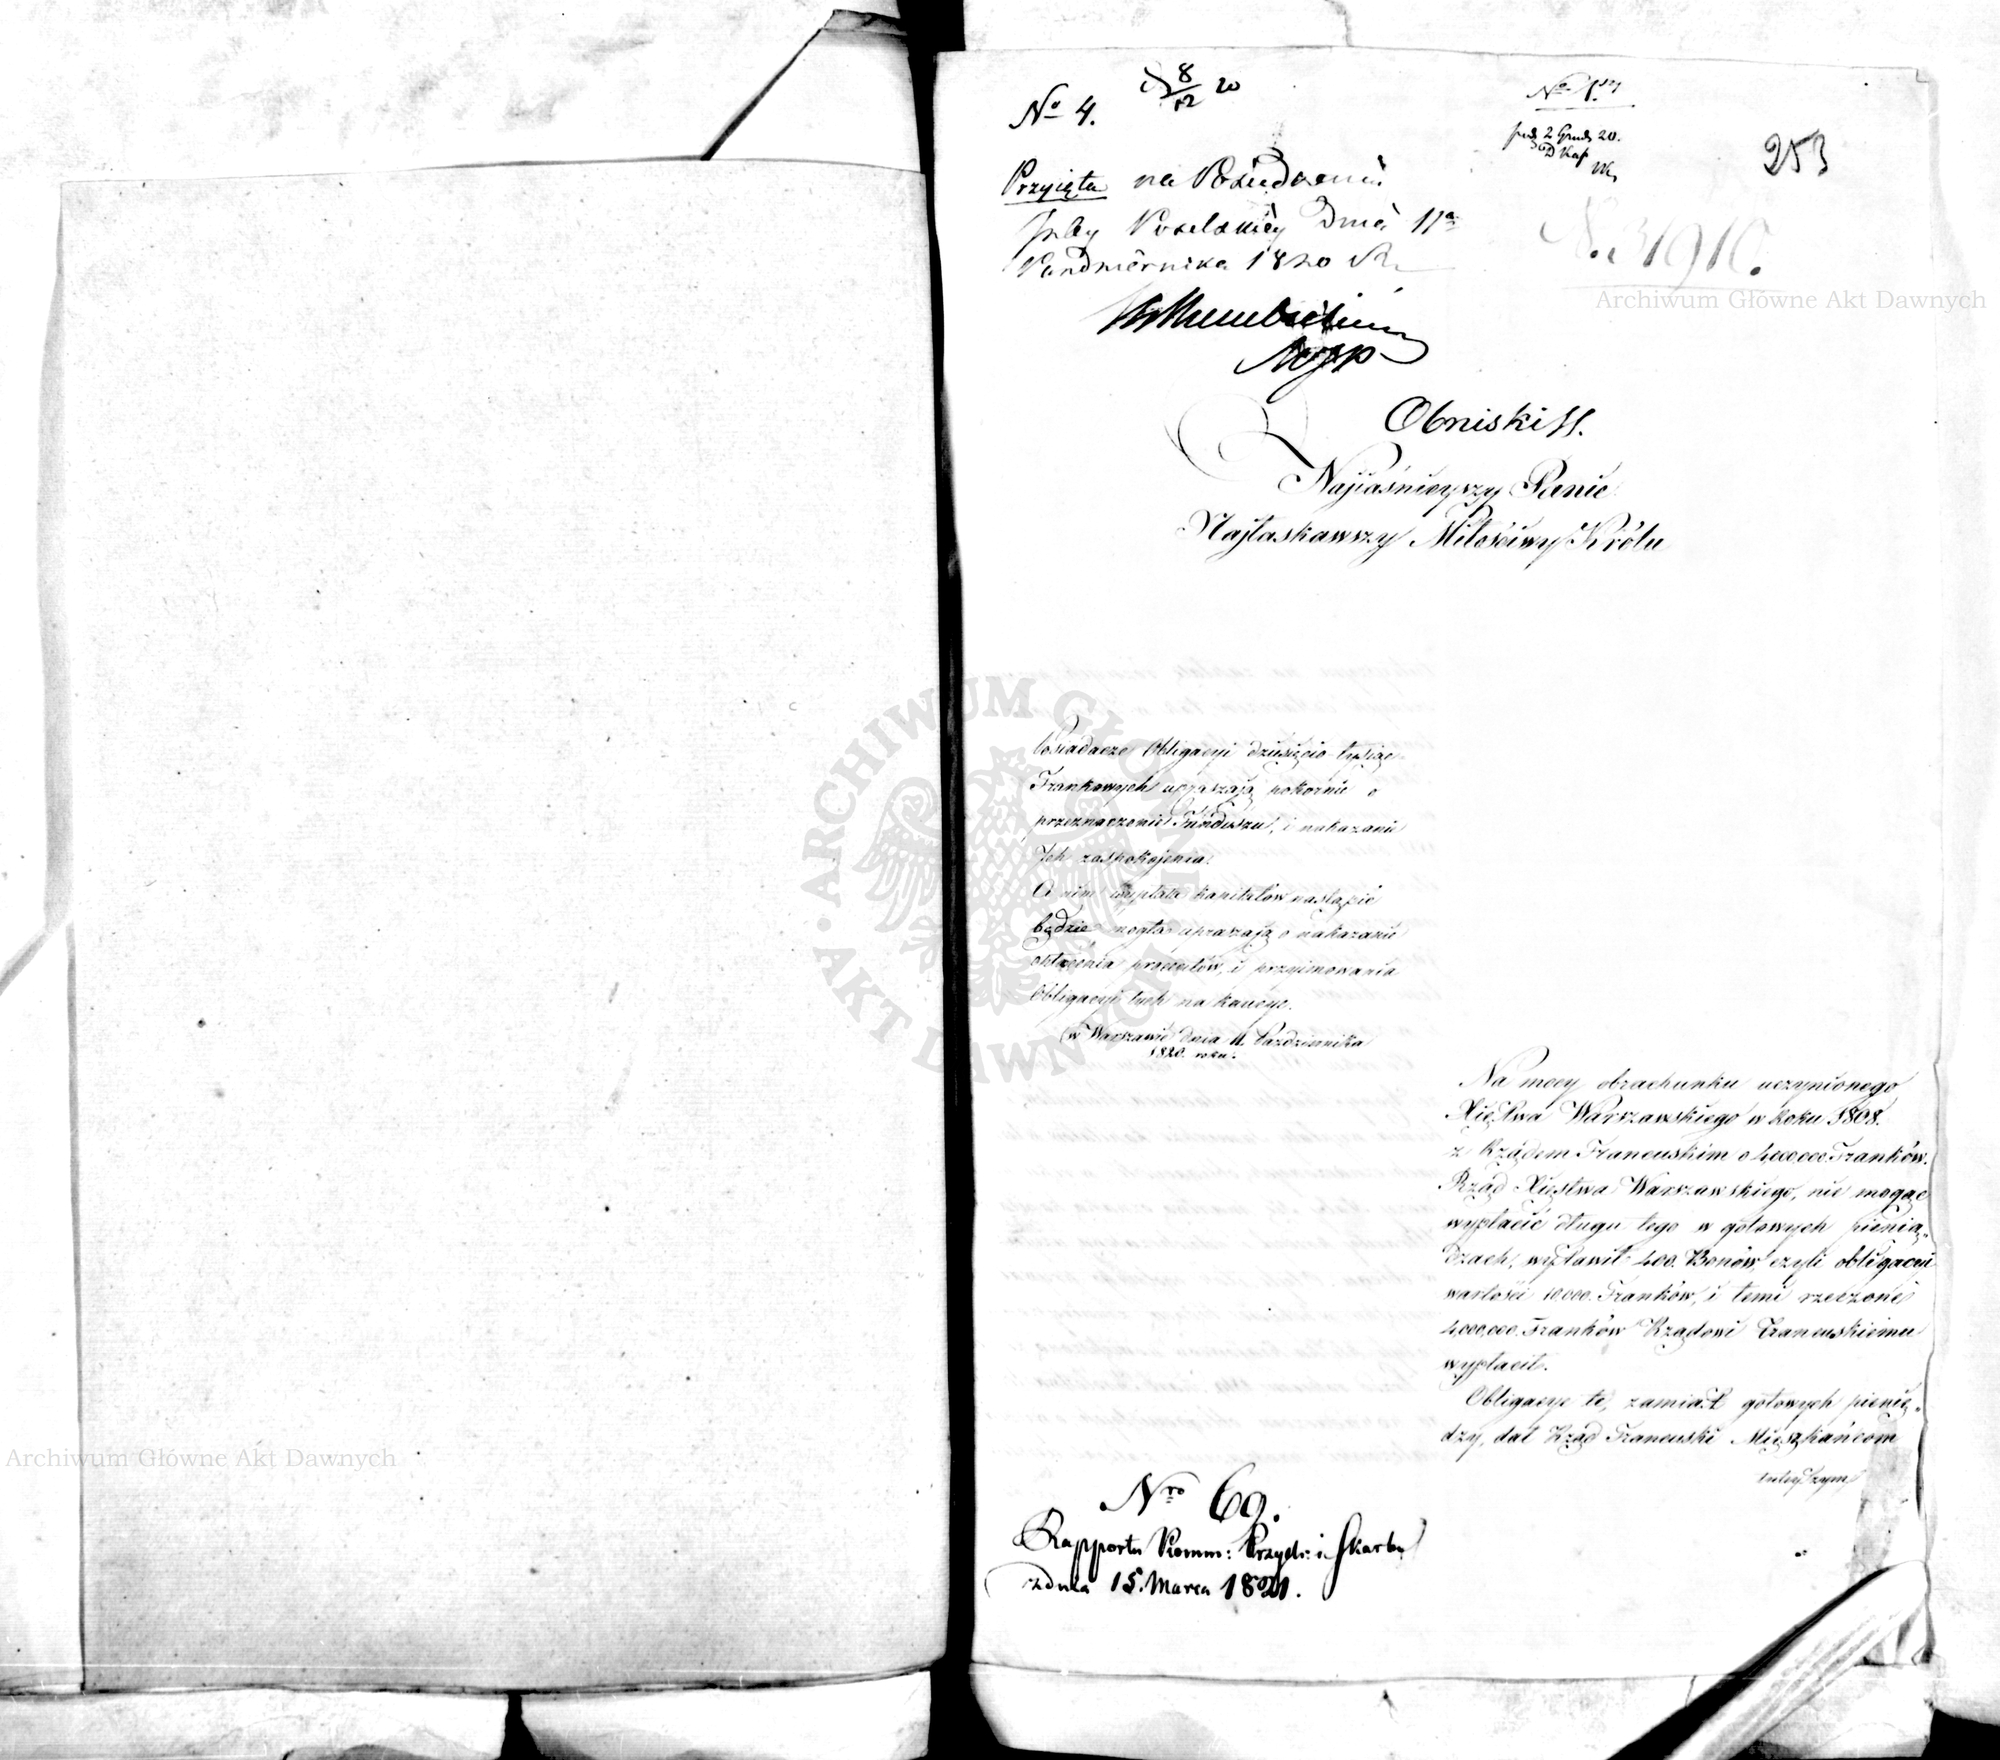 No 4.
8/12 20
No 1.
2 Grud 20.
253
Przyięta na Posiedzeniu
Izby Poselskiey Dnia 11o
Pazdziernika 1820 R.
N. 3191
Archiwum Główne Akt Dawnych
Obniski
Najiaśnieyszy Panie
Najłaskawszy Miłościwy Królu
ARCHIWUM GŁÓWNE AKT DAWNYCH
Posiadacze Obligacyi dziesięcio-tysiąc-
Frankowych upraszają pokornie o
przeznaczenie Funduszu, i nakazanie
Ich zaspokojenia.
A nim wypłata kapitałów nastąpić
będzie mogła upraszają o nakazanie
opłacenia procentów, i przyimowania
Obligacyi tych na kaucye.
w Warszawie dnia 11. Października
1820. roku.
Na mocy obrachunku uczynionego
Xięstwa Warszawskiego w Roku 1808.
z Rządem Francuskim o 4,000,000 Franków.
Rząd Xięstwa Warszawskiego, nie mogąc
wypłacić długu tego w gotowych pienią„
dzach, wystawił 400. Bonów, czyli obligacyi
wartości 10,000. Franków, i temi rzeczone
4,000,000. Franków Rządowi Francuskiemu
wypłacił.
Obligacye te, zamiast gotowych pienię„
dzy, dał Rząd Francuski Mieszkańcom
tuteyszym
Archiwum Główne Akt Dawnych
Nro 69.
Rapportu Komm: Przych: i Skarbu
z dnia 15. Marca 1821.